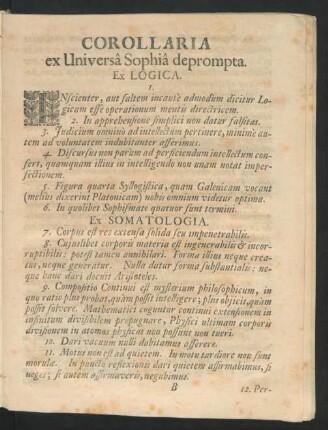 COROLLARIA
ex Universâ Sophiâ deprompta.
EX LOGICA.
1.
INscienter, aut saltem incautè admodum dicitur Lo-
gicam esse operationum mentis directricem.
2. In apprehensione simplici non datur falsitas.
3. Judicium omninò ad intellectum pertinere, minimè au-
tem ad voluntatem indubitanter asserimus.
4. Discursus non parùm ad perficiendum intellectum con-
fert, quamquam illius in intelligendo non unam notat imper-
fectionem.
5. Figura quarta Syllogistica, quam Galenicam vocant
(meliùs dixerint Platonicam) nobis omnium videtur optima.
6. In quolibet Sophismate quatuor sunt termini.
EX SOMATOLOGIA.
7. Corpus est res extensa solida seu impenetrabilis.
8. Cujuslibet corporis materia est ingenerabilis & incor-
ruptibilis: potest tamen annihilari. Forma illius neque crea-
tur, neque generatur. Nulla datur forma substantialis: ne-
que hanc dari docuit Aristoteles.
9. Compositio Continui est mysterium philosophicum, in
quo ratio plus probat, quàm possit intelligere; plus objicit, quàm
possit solvere. Mathematici coguntur continui extensionem in
infinitum divisibilem propugnare, Physici ultimam corporis
divisionem in atomos physicas non possunt non tueri.
10. Dari vacuum nulli dubitamus asserere.
11. Motus non est ad quietem. In motu tardiore non sunt
morulæ. In puncto reflexionis dari quietem affirmabimus, si
neges; si autem affirmaveris, negabimus.
B 12. Per-